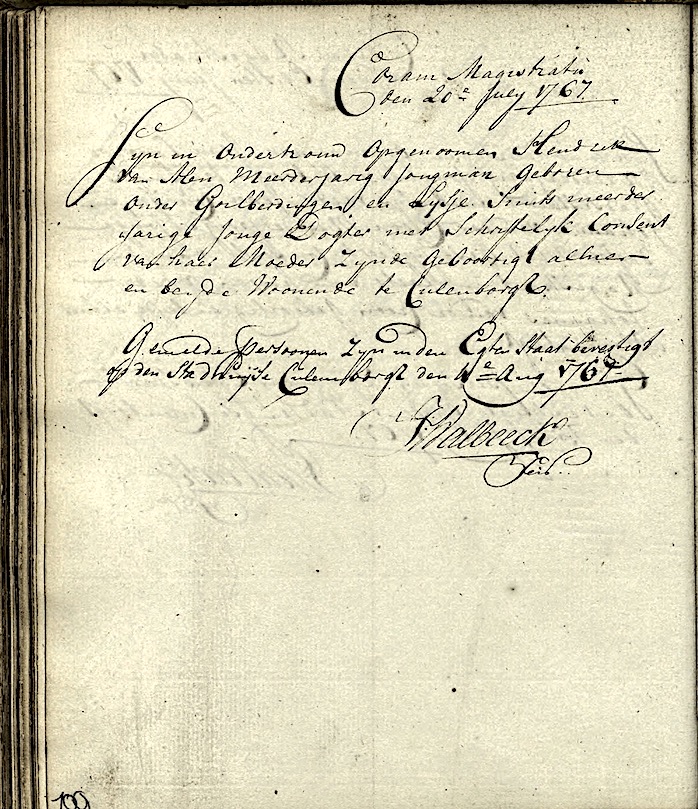 Coram Magistratu
den 20e July 1767
Syn in Ondertrouw Opgenoomen Hendrik
van Alen Meerderjarig Jongman Geboren
onder Golberdingen en Lysje Smits meerder
jarige Jonge Dogter met Schriftelyk Consent
van haer Moeder Zynde Geboortigt alhier
en beyde Woonende te Culenborgh.
Gemelde Persoonen Zyn in den Egten Staat bevestigt
op den Stadhuyse Culemborgh den Aug 1767
Walbeeck
Secr.